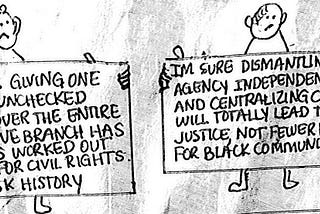 GIVING ONE
UNCHECKED
OVER THE ENTIRE
VE BRANCH HAS
S WORKED OUT
FOR CIVIL RIGHTS.
SK HISTORY
IM SURE DISMANTLIN
AGENCY INDEPENDEN
AND CENTRALIZING C
WILL TOTALLY LEAD T
JUSTICE, NOT FEWER
FOR BLACK COMMUN